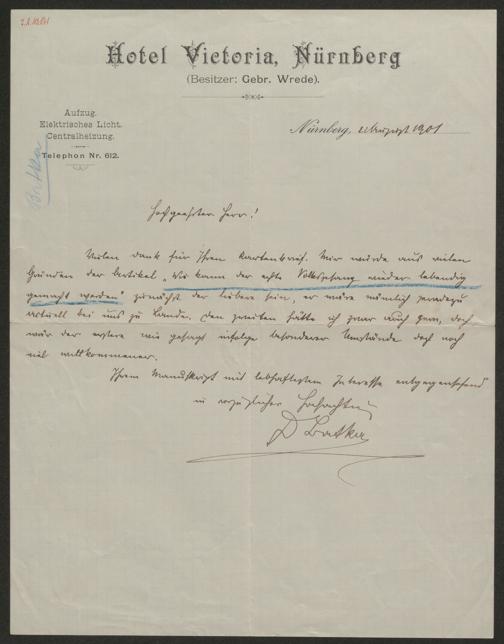 Hotel Victoria, Nürnberg
(Besitzer: Gebr. Wrede).
Aufzug.
Elektrisches Licht.
Centralheizung.
Telephon Nr. 612.
Batka
Nürnberg, August 1901
Hochgeehrter Herr!
Vielen Dank für Ihren Kartenbrief. Mir würde aus vielen
Gründen der Artikel „Wie kann der echte Volksgesang wieder lebendig
gemacht werden" zunächst der liebere sein, er wäre nämlich geradezu
actuell bei uns zu Lande. Den zweiten hätte ich zwar auch gern, doch
wär der erstere wie gesagt infolge besonderer Umstände doch noch
viel willkommener.
Ihrem Manuskript mit lebhaftestem Interesse entgegensehend
in vorzüglicher Hochachtung
D Batka